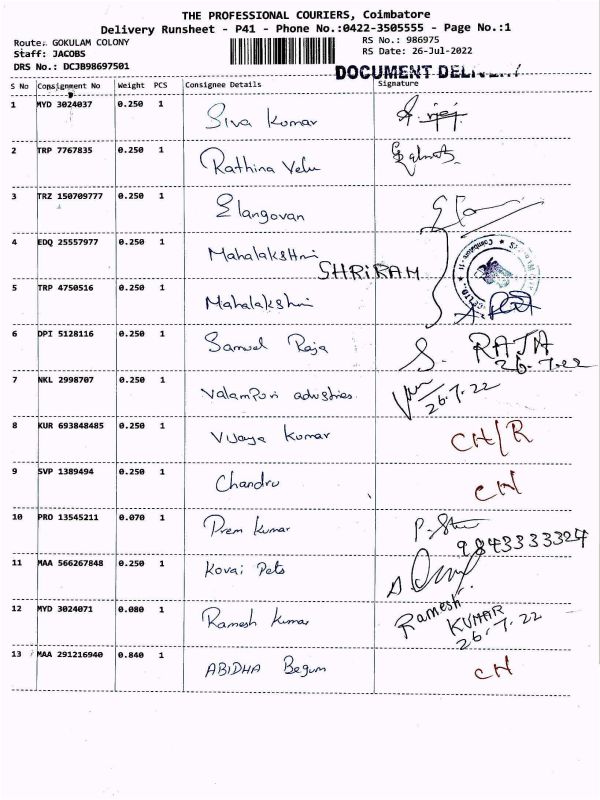 THE PROFESSIONAL COURIERS, Coimbatore
Delivery Runsheet - P41 - Phone No.:0422-3505555 - Page No.:1
Route: GOKULAM COLONY RS No.: 986975
Staff: JACOBS RS Date: 26-Jul-2022
DRS No.: DCJB98697501
DOCUMENT
S No Consignment No Weight PCS Consignee Details Signature
1 MYD 3024037 0.250 1 Siva Kumar
2 TRP 7767835 0.250 1 Rathina Velu
3 TRZ 150709777 0.250 1 Elangovan
4 EDQ 25557977 0.250 1 Mahalakshmi
SHRIRAM
5 TRP 4750516 0.250 1 Mahalakshmi
6 DPI 5128116 0.250 1 Samuel Raja S. RAJA
26-7-22
7 NKL 2998707 0.250 1 Valampuri adustries 26-7-22
8 KUR 693848485 0.250 1 Vijaya Kumar CH/R
9 SVP 1389494 0.250 1 Chandru CH
10 PRO 13545211 0.070 1 Prem Kumar
9843333324
11 MAA 566267848 0.250 1 Kovai Pets
12 MYD 3024071 0.080 1 Ramesh Kumar Ramesh
KUMAR
26-7-22
13 MAA 291216940 0.840 1 ABIDHA Begum CH